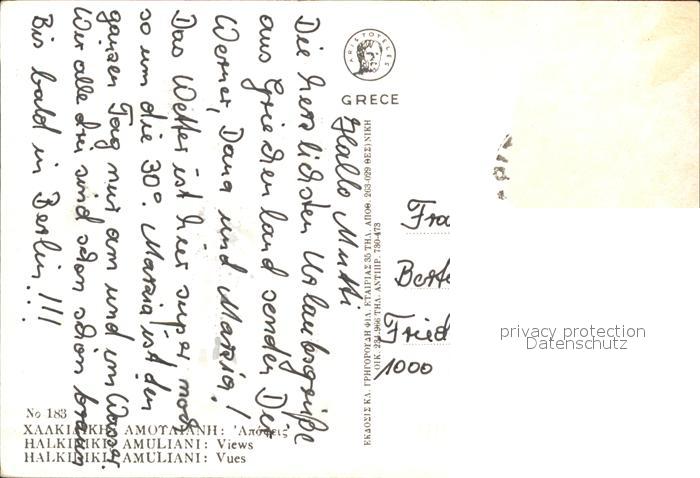 Hallo Mutti
Die herzlichsten Urlaubsgrüße
aus Griechenland senden Der
Werner, Dana und Marzia!
Das Wetter ist hier super mod
so um die 30°. Marzia ist den
ganzen Tag nur am und im Wasser.
Wir alle drei sind schon schön braun
Bis bald in Berlin!!!
ARISTOTELES
GRECE
ΕΚΔΟΣΙΣ ΚΛ. ΓΡΗΓΟΡΟΥΔΗ ΦΙΛ. ΕΤΑΙΡΙΑΣ 35 ΤΗΛ. ΑΠΟΘ. 263-029 ΘΕΣ)ΝΙΚΗ
ΟΙΚ. 234-966 ΤΗΛ. ΑΝΤΙΠΡ. 730-473
Fra
Berte
Fried
1000
privacy protection
Datenschutz
No 183
ΧΑΛΚΙΔΙΚΗ ΑΜΟΥΛΙΑΝΗ: Ἀπόψεις
HALKIDIKI AMULIANI: Views
HALKIDIKI AMULIANI: Vues